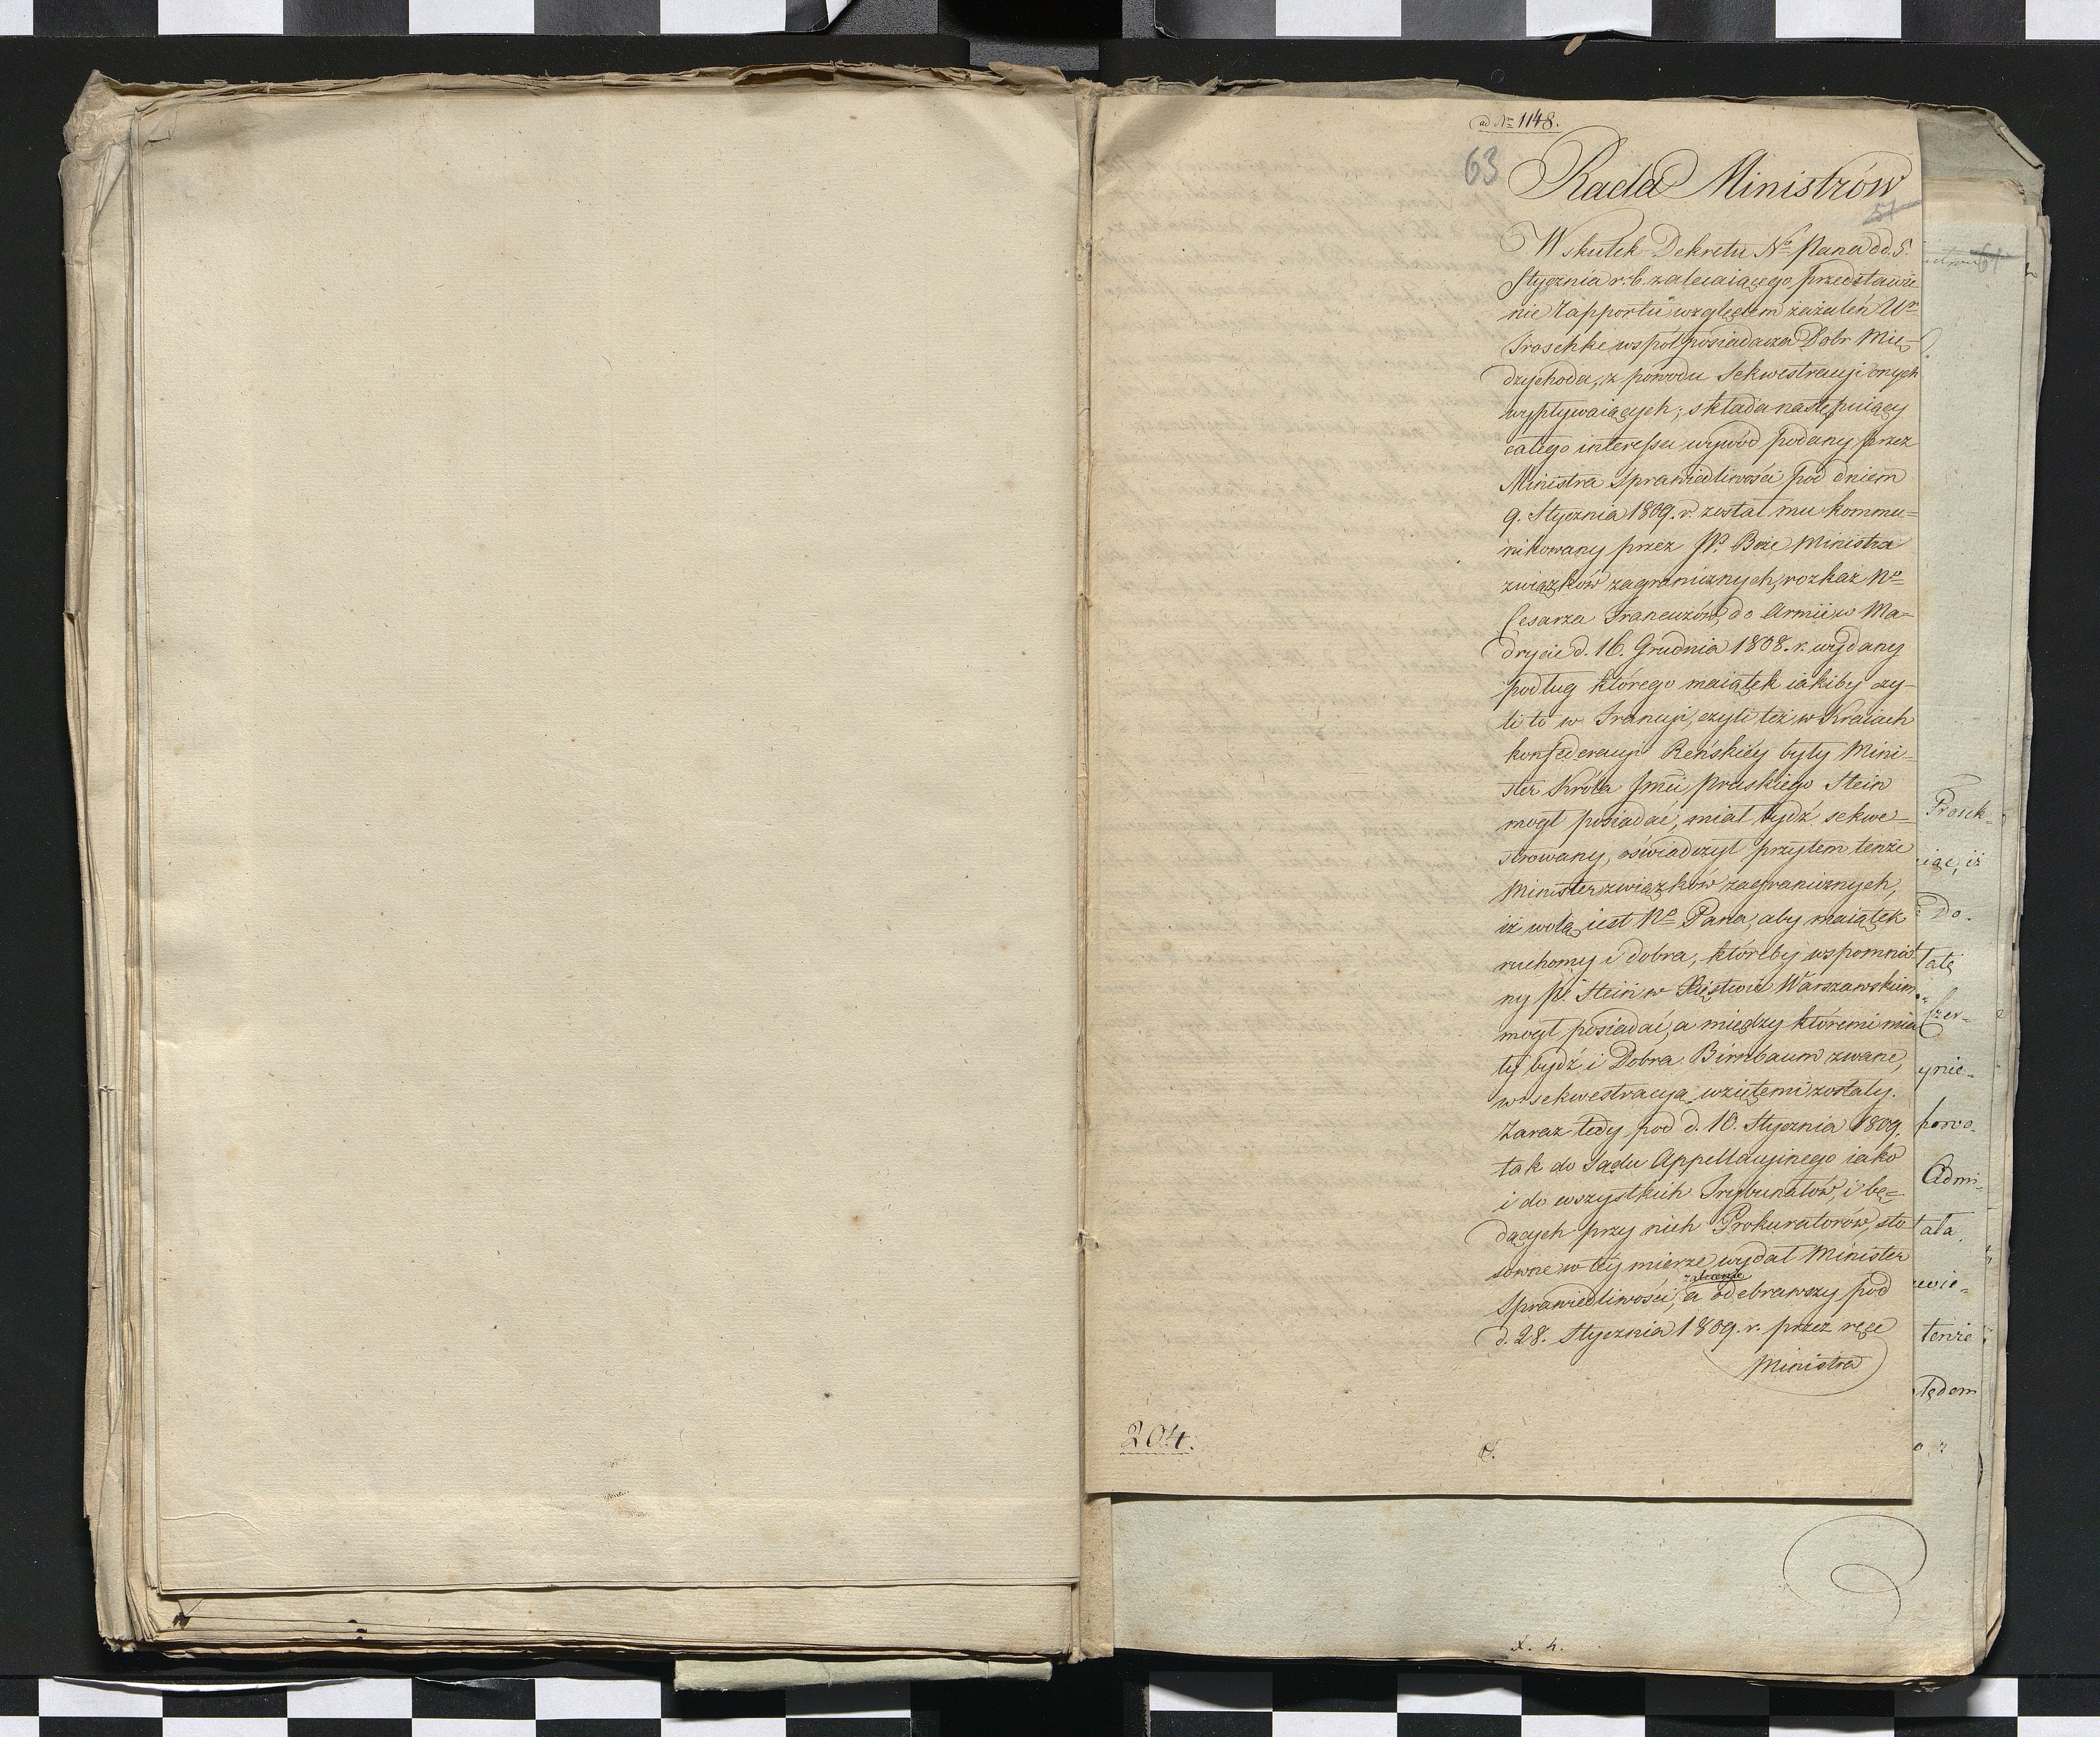 ad Nr 1148.
63
Rada Ministrów
51
W skutek Dekretu No Pana dd. 5.
Stycznia r. b. zalecaiącego przedstawie
nie Rapportu względem zażaleń Ur
Troschke współposiadacza Dobr Mię-
dzychoda, z powodu Sekwestracyi onych
wypływaiących; składa następuiący
całego interessu wywód podany przez
Ministra Sprawiedliwości pod dniem
9. Stycznia 1809. r. został mu kommu=
nikowany przez JP. Boze Ministra
związków zagranicznych, rozkaz No
Cesarza Francuzów, do Armii w Ma=
drycie d. 16. Grudnia 1808. r. wydany
podług którego maiątek iakiby czy-
li to w Francyi, czyli też w Kraiach
konfederacyi Reńskiéy były Mini-
ster Króla Jmći pruskiego Stein
mogł posiadać, miał bydź sekwe-
strowany, oświadczył przytem tenże
Minister związków zagranicznych,
iż wolą iest No Pana, aby maiątek
ruchomy i dobra, któreby wspomnio
ny P. Stein w Xięstwie Warszawskiem
mogł posiadać, a między któremi mia
ły bydź i Dobra Birnbaum zwane,
w sekwestracyą wziętemi zostały.
Zaraz tedy pod d. 10. Stycznia 1809.
tak do Sądu Appellacyinego iako
i do wszystkich Trybunałów, i bę=
dących przy nich Prokuratorów, sto
sowne w téy mierze wydał Minister
zalecenie
Sprawiedliwości, a odebrawszy pod
d. 28. Stycznia 1809. r. przez ręce
Ministra
204.
61
Trosck=
iąc, iż
Do.
tałę
Czer=
ynie=
powo-
Admi-
tała.
ewie=
tenże
lędem
x. 4.